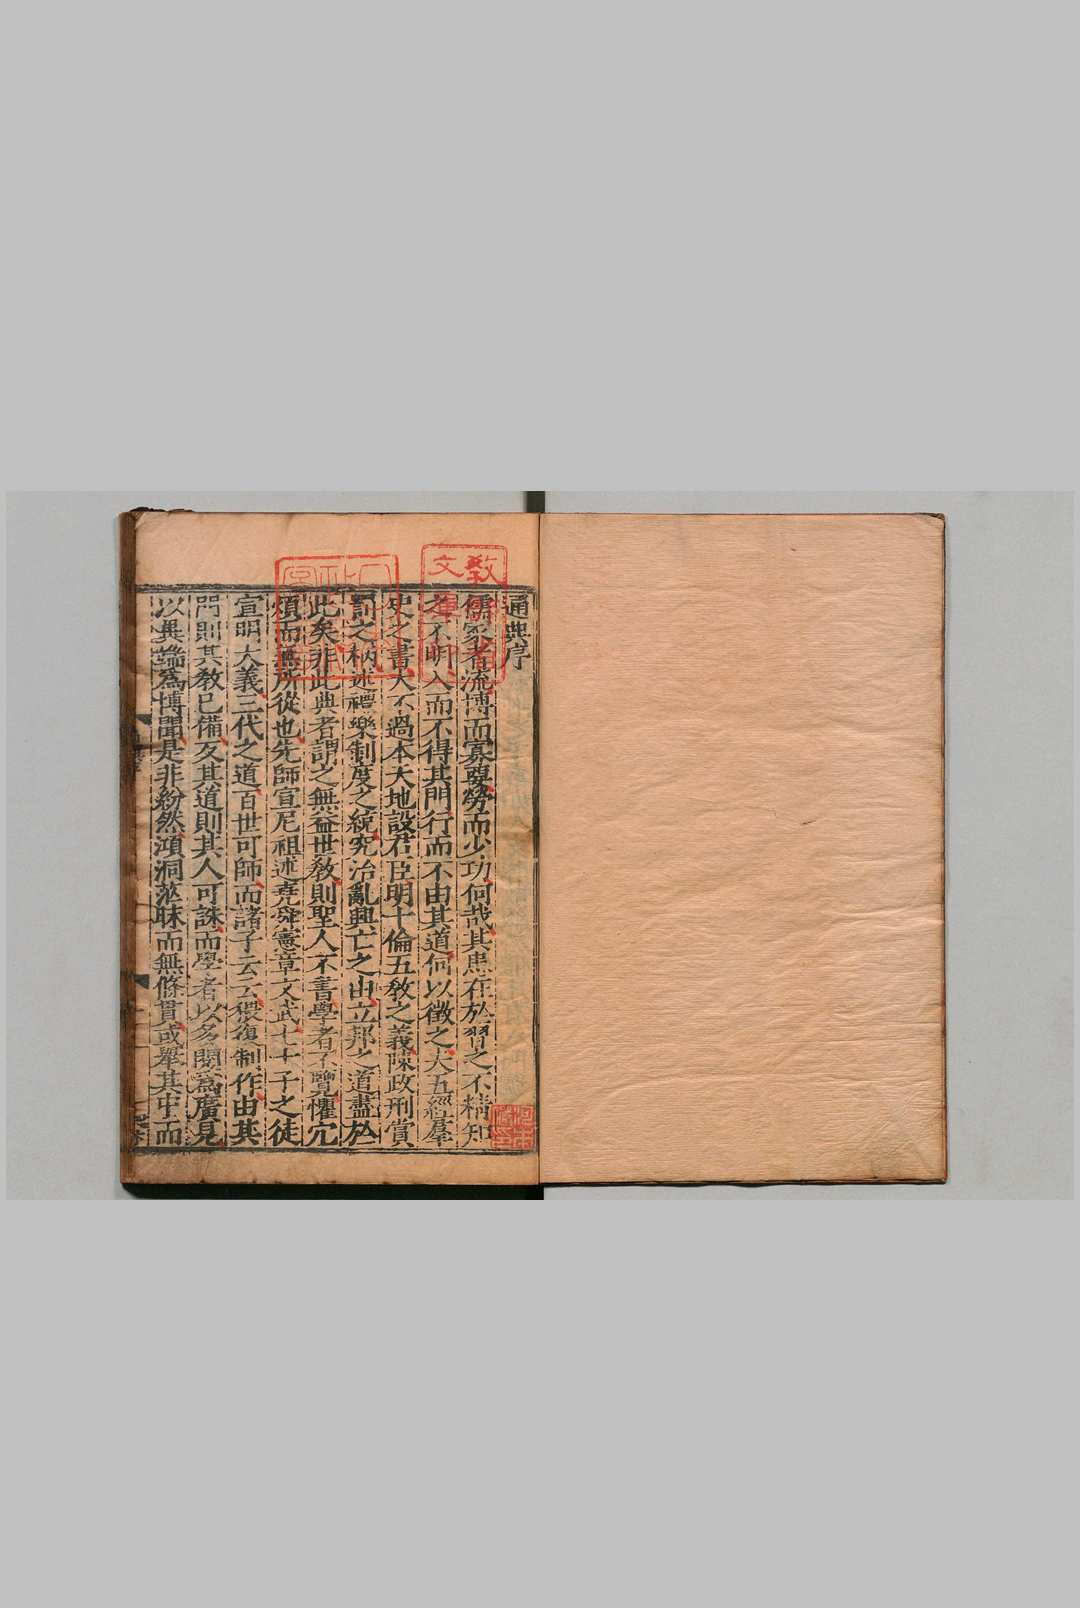 通典序
儒家者流博而寡要勞而少功何哉其患在於習之不精知
之不明入而不得其門行而不由其道何以徵之夫五經羣
史之書大不過本天地設君臣明十倫五教之義陳政刑賞
罰之柄述禮樂制度之統究治亂興亡之由立邦之道盡於
此矣非此典者謂之無益世教則聖人不書學者不覽懼冗
煩而無所從也先師宣尼祖述堯舜憲章文武七十子之徒
宣明大義三代之道百世可師而諸子云云猥復制作由其
門則其教已備反其道則其人可誅而學者以多閱爲廣見
以異端爲博聞是非紛然澒洞茫昧而無條貫或舉其中而